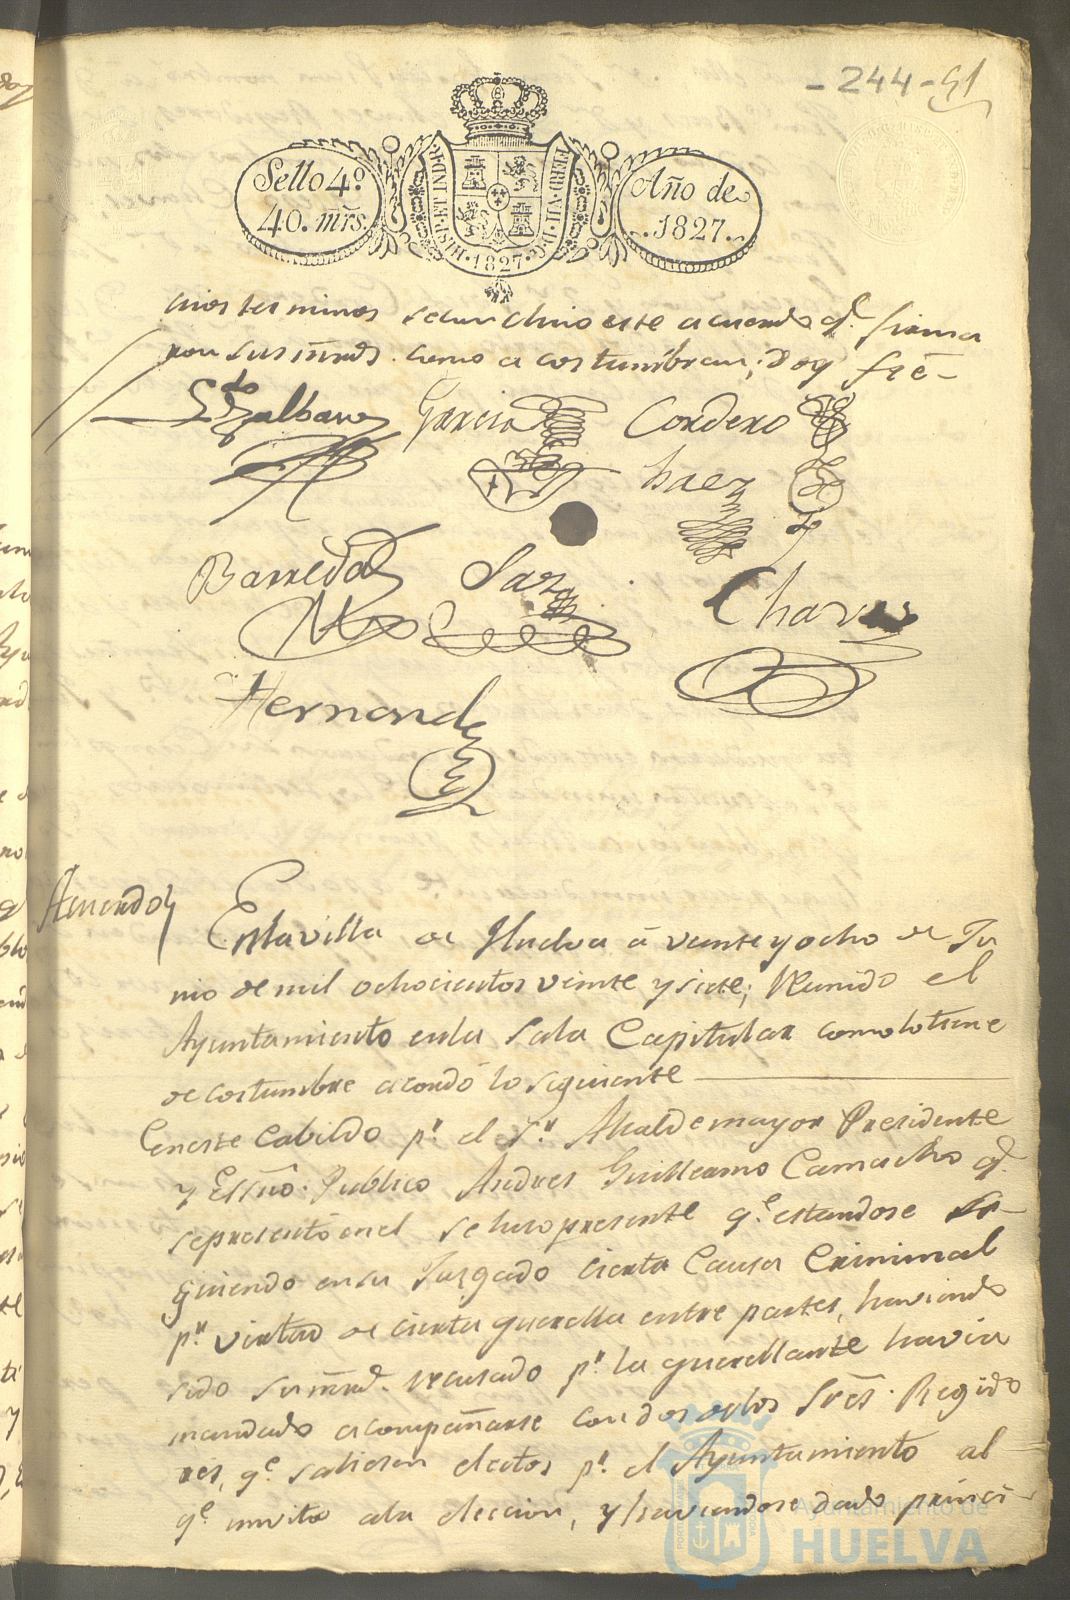 - 244 - 51
Sello 4º
40. mrs.
HISP. ET IND. R.
FERD. VII. D. G.
· 1827 ·
Año de
1827.
este acuerdo qe. firma
ron sus mrds. como acostumbran; doy feé-
Garcia Cordero
Saez
Barreda Saez Chaves
Hernandz
Acuerdo
Enla villa de Huelva á veinte y ocho de Ju
nio de mil ochocientos veinte y siete; Reunido el
Ayuntamiento enla Sala Capitular como lo tiene
de costumbre acordó lo siguiente
Eneste Cabildo pr. el Sr. Alcalde mayor Presidente
y Essno. Publico Andres Guillermo Camacho qe.
sepresentó enel se hizo presente qe. estandose si-
guiendo en su Juzgado cierta Causa Criminal
pr. virtud de cierta querella entre partes, haviendo
sido su mrd. recusado pr. la querellante havia
mandado acompañarse con dos delos Sres. Regido
res, qe. salieran electos pr. el Ayuntamiento al
qe. invitó ala eleccion, y haviendose dado princi-
Ayuntamiento de
HUELVA